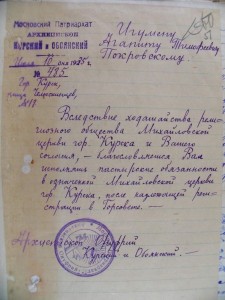 Московский Патриархат
АРХИЕПИСКОП
КУРСКИЙ и ОБОЯНСКИЙ
Июля 10 дня 1935 г.
№ 485
гор. Курск,
улица Челюскинцев,
№ 18
Игумену
Агапиту Тимофеевичу
Покровскому
Вследствие ходатайства религиозного общества Михайловской
церкви гор. Курска и Вашего
согласия, – благословляется Вам
исполнять пастырские обязанности
в означенной Михайловской церкви
гор. Курска, после надлежащей регистрации
в Горсовете. –
Архиепископ Онуфрий
Курский и Обоянский. –